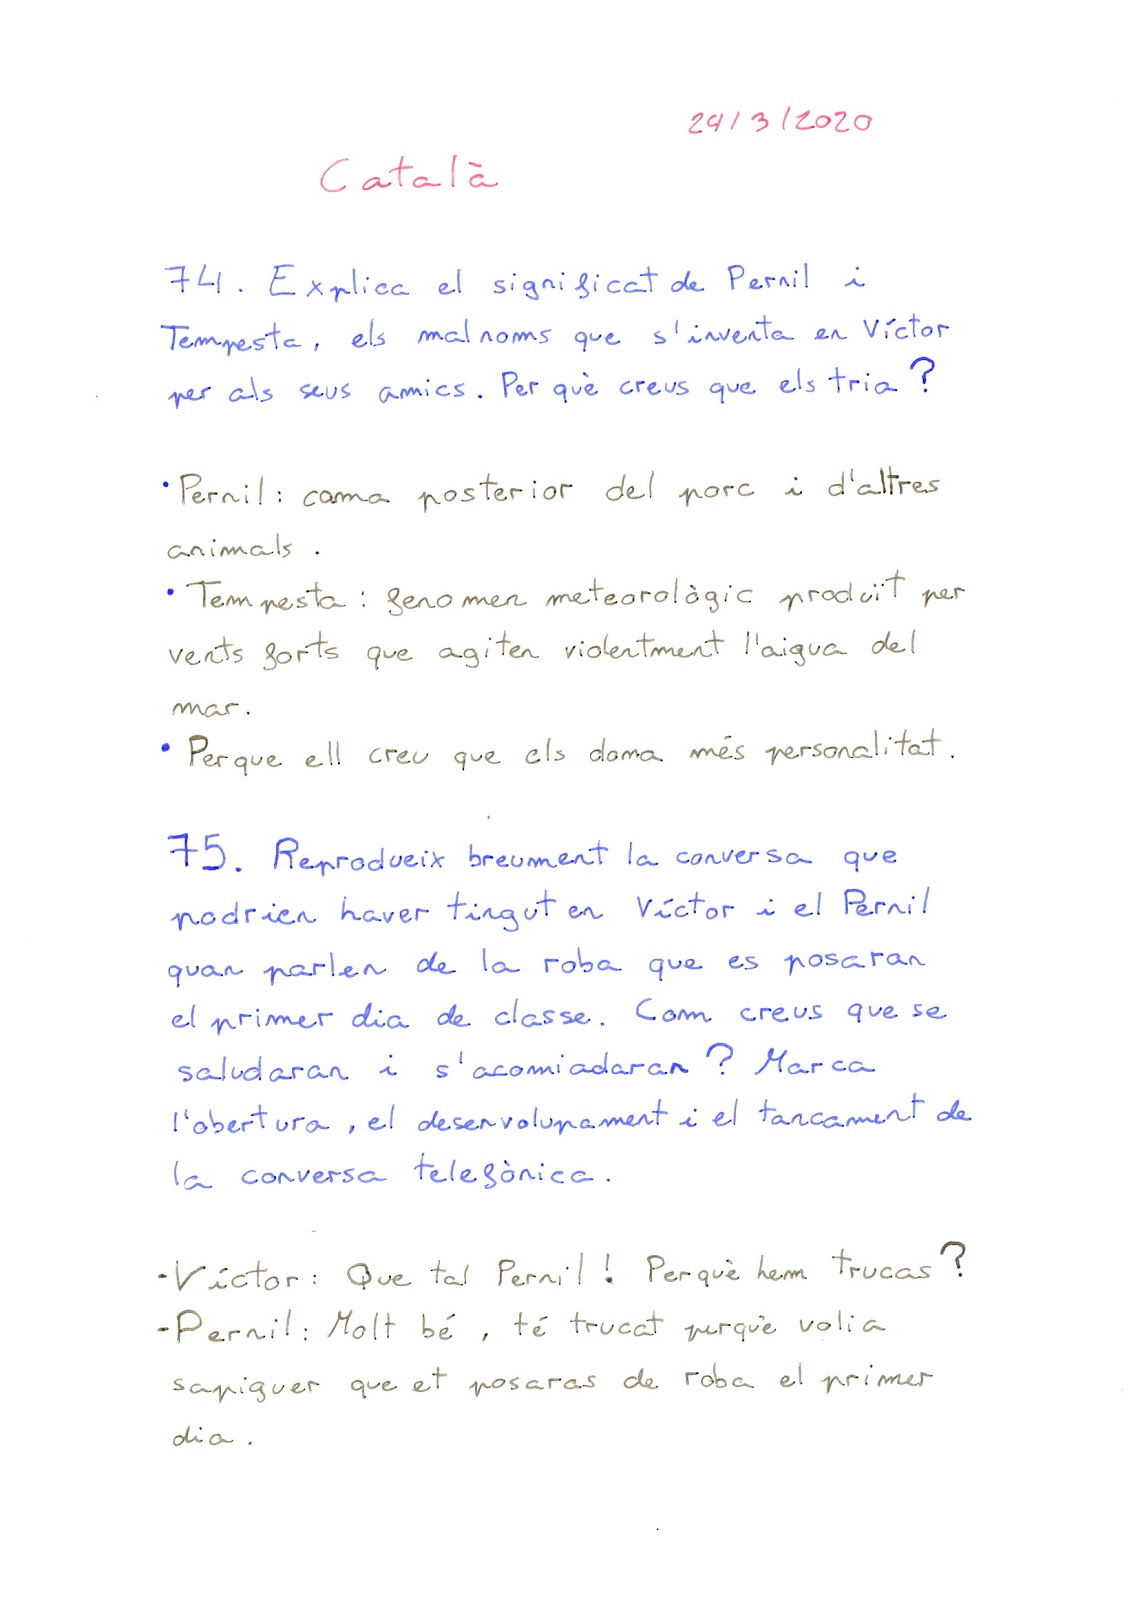 29/3/2020
Català
74. Explica el significat de Pernil i
Tempesta, els malnoms que s'inventa en Víctor
per als seus amics. Per què creus que els tria?
• Pernil: cama posterior del porc i d'altres
animals.
• Tempesta: fenomen meteorològic produït per
vents forts que agiten violentment l'aigua del
mar.
• Perque ell creu que els doma més personalitat.
75. Reprodueix breument la conversa que
podrien haver tingut en Víctor i el Pernil
quan parlen de la roba que es posaran
el primer dia de classe. Com creus que se
saludaran i s'acomiadaran? Marca
l'obertura, el desenvolupament i el tancament de
la conversa telefònica.
-Víctor: Que tal Pernil! Perquè hem trucas?
-Pernil: Molt bé, té trucat perquè volia
sapiguer que et posaras de roba el primer
dia.